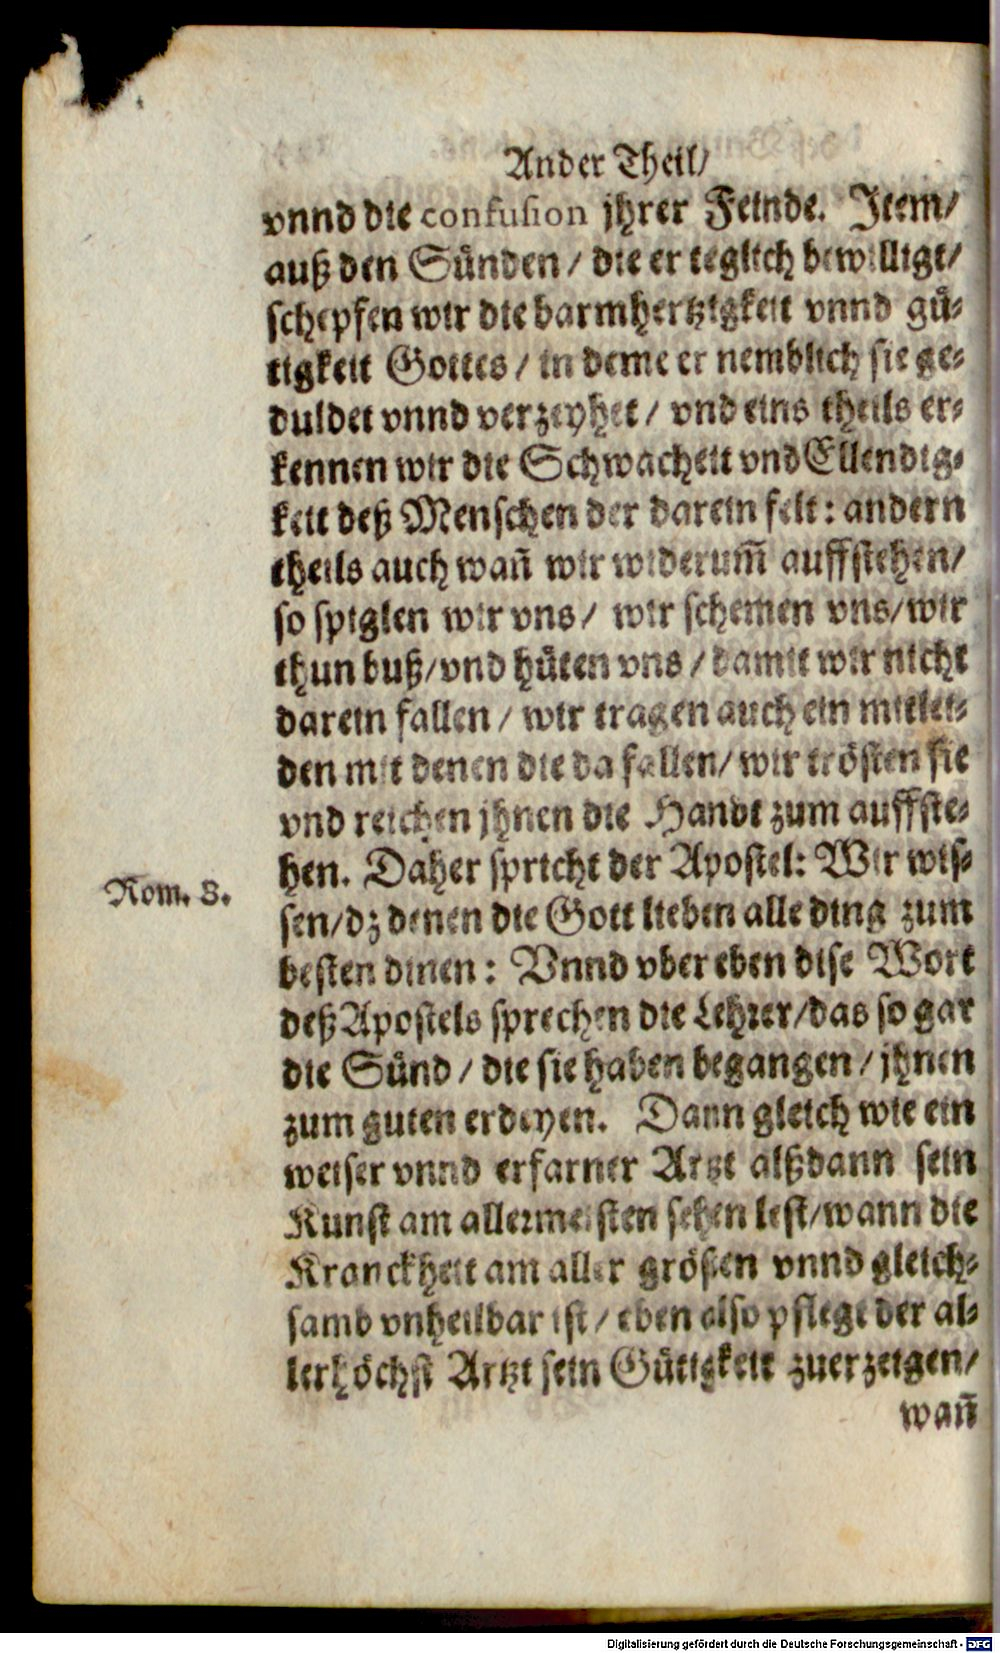 Ander Theil/
vnnd die confusion jhrer Feinde. Item/
auß den Sünden / die er teglich bewilligt/
schepfen wir die barmhertzigkeit vnnd gü-
tigkeit Gottes / in deme er nemblich sie ge-
duldet vnnd verzeyhet / vnd eins theils er-
kennen wir die Schwacheit vnd Ellendig-
keit deß Menschen der darein felt: andern
theils auch wañ wir widerum̃ auffstehen/
so spiglen wir vns / wir schemen vns/wir
thun buß/vnd hüten vns / damit wir nicht
darein fallen / wir tragen auch ein mitlei-
den mit denen die da fallen/ wir trösten sie
vnd reichen jhnen die Handt zum auffste-
hen. Daher spricht der Apostel: Wir wis-
Rom. 8.
sen/dz denen die Gott lieben alle ding zum
besten dinen: Vnnd vber eben dise Wort
deß Apostels sprechen die Lehrer/das so gar
die Sünd / die sie haben begangen / jhnen
zum guten erdeyen. Dann gleich wie ein
weiser vnnd erfarner Artzt alßdann sein
Kunst am allermeisten sehen lest/wann die
Kranckheit am aller größen vnnd gleich-
samb vnheilbar ist / eben also pflegt der al-
lerhöchst Artzt sein Gütigkeit zuerzeigen/
wañ
Digitalisierung gefördert durch die Deutsche Forschungsgemeinschaft - DFG